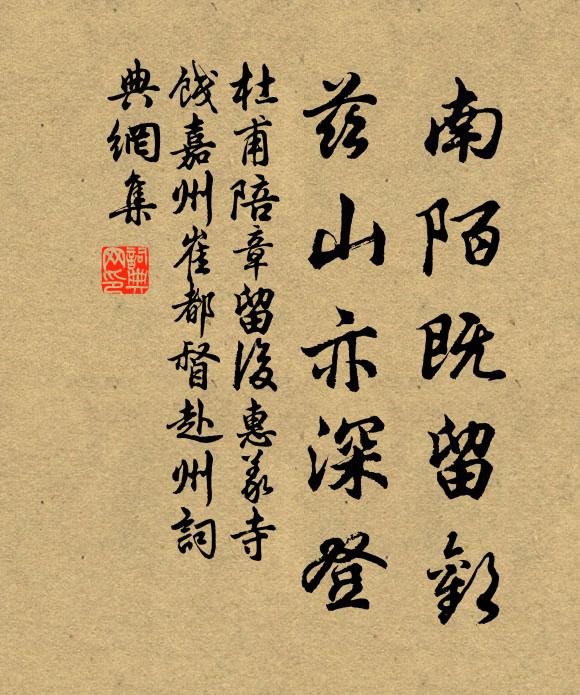 南陌既留歡
茲山亦深登
杜甫陪章留後惠義寺
餞嘉州崔都督赴州詞
典網集
詞典網印